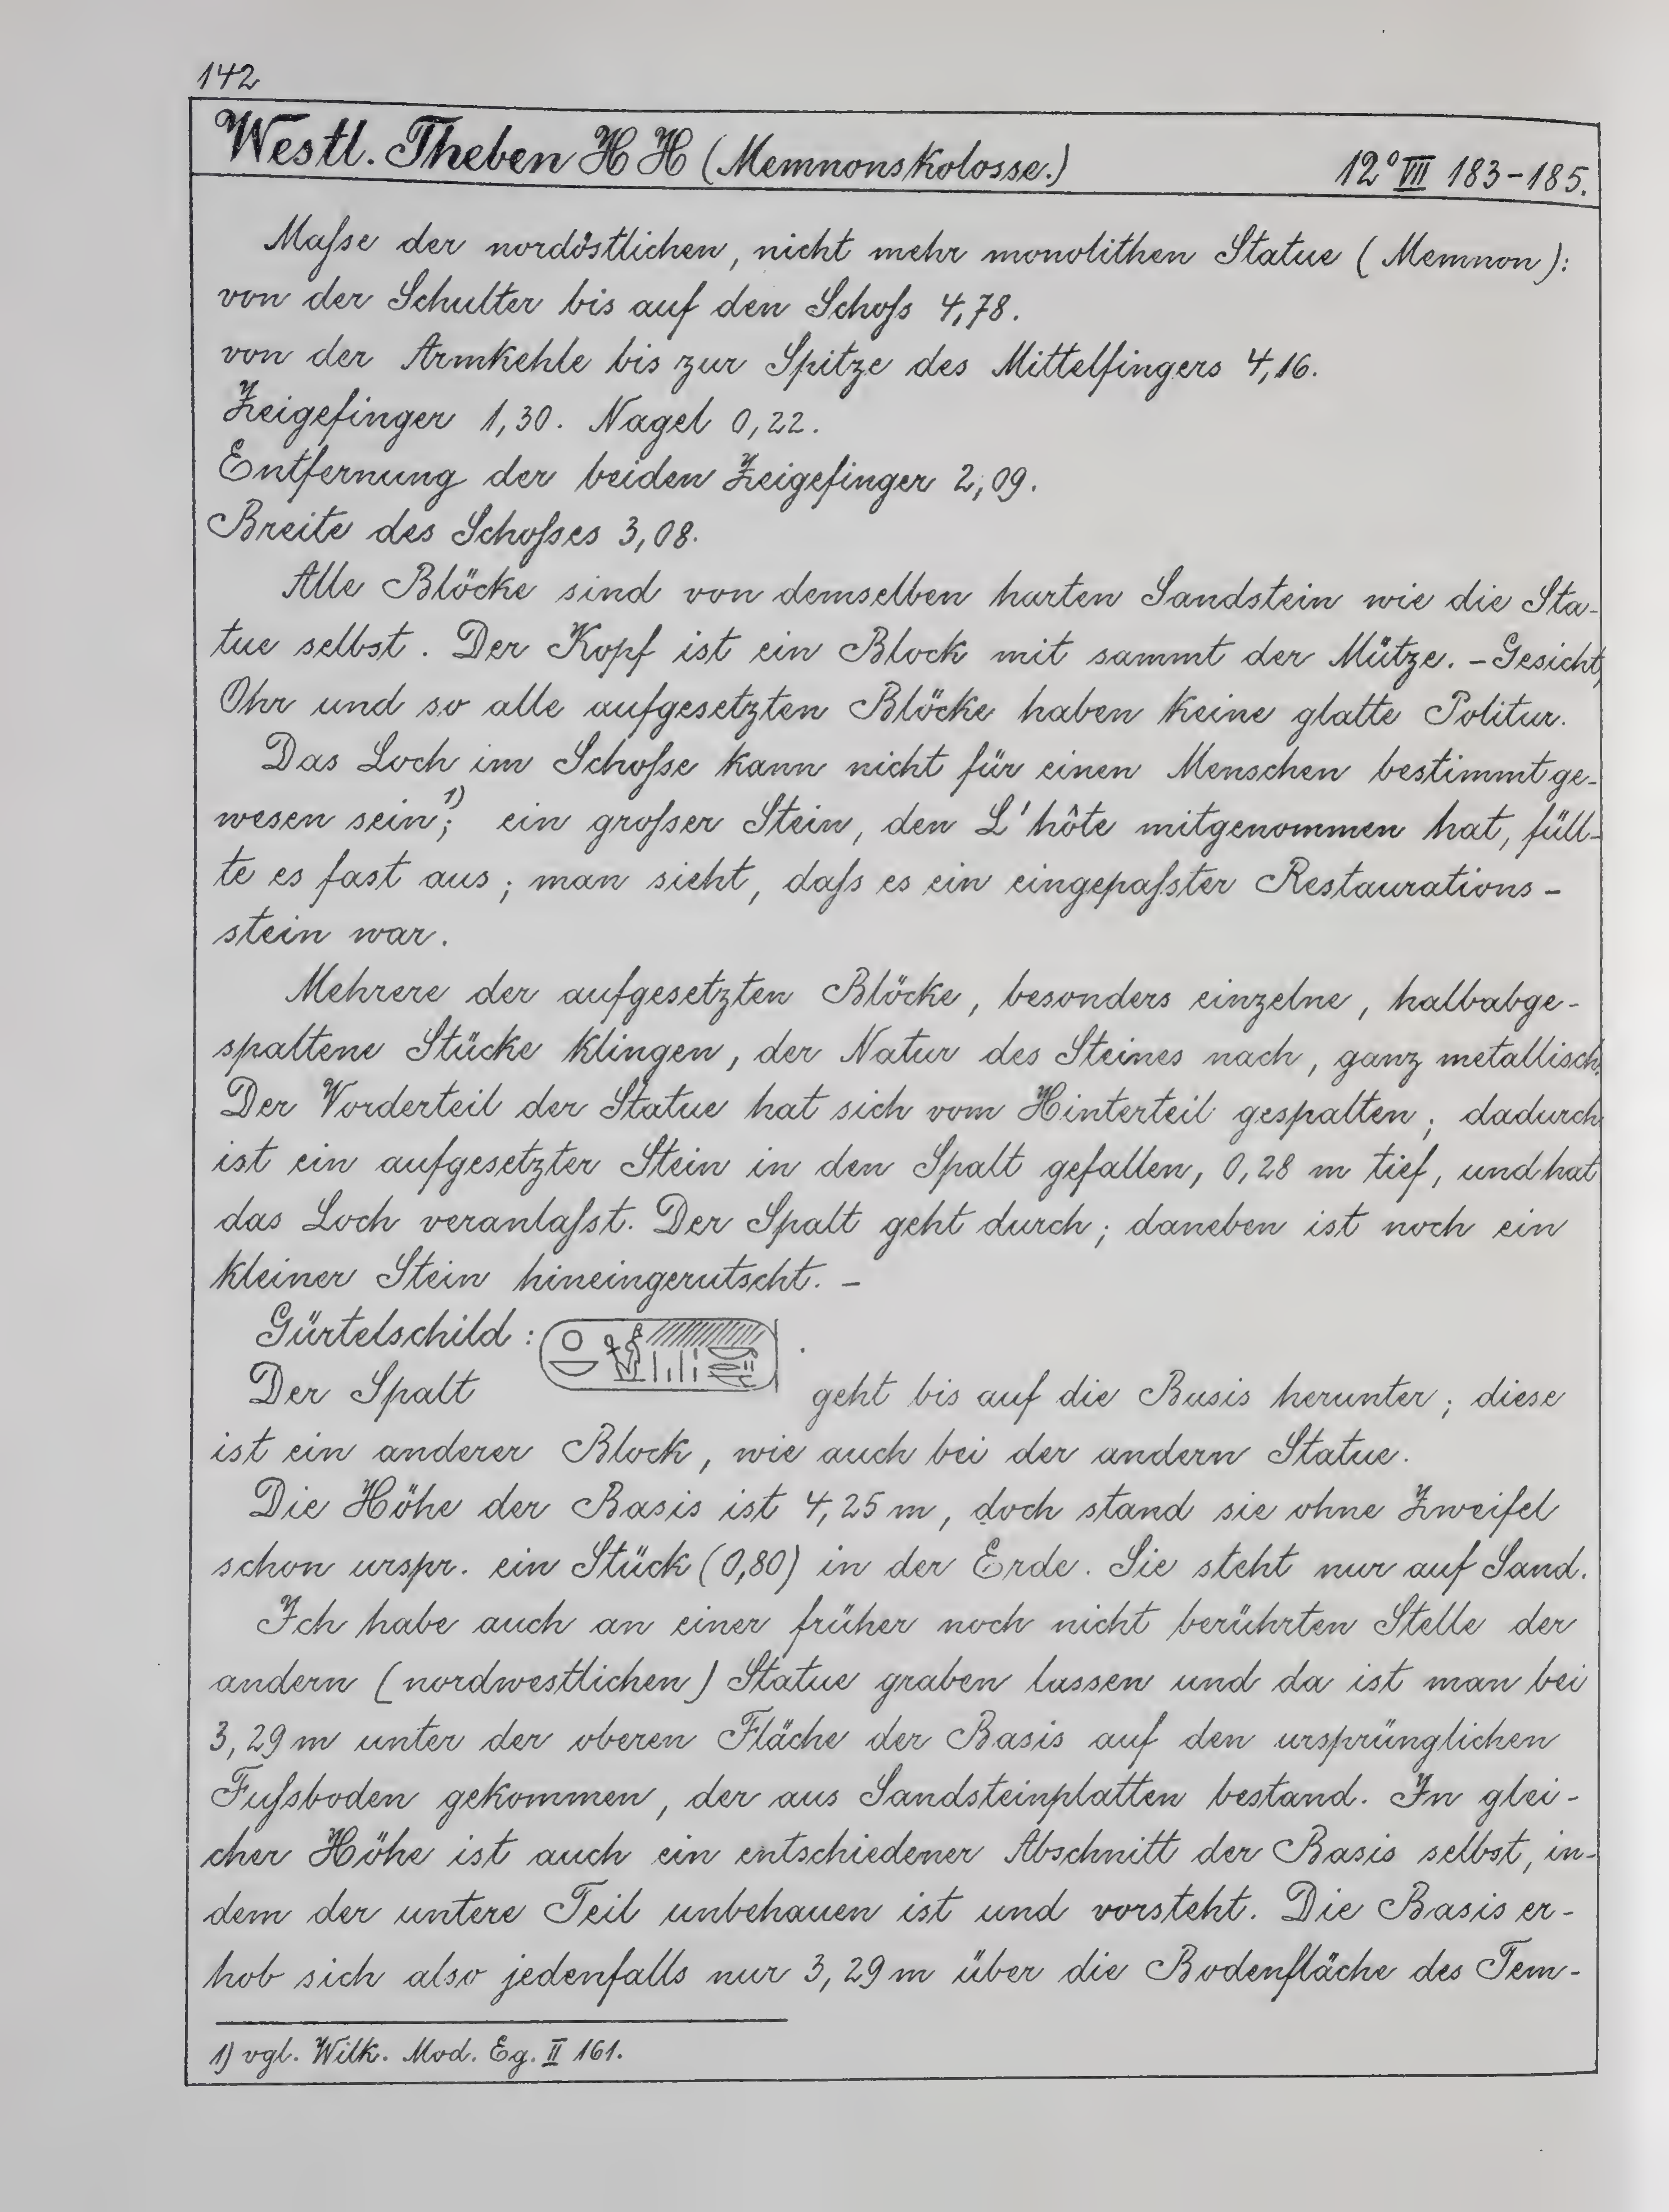 142
Westl. Theben H H (Memnonskolosse.) 12° VII 183-185.
Maſse der nordöstlichen, nicht mehr monolithen Statue (Memnon):
von der Schulter bis auf den Schoſs 4,78.
von der Armkehle bis zur Spitze des Mittelfingers 4,16.
Zeigefinger 1,30. Nagel 0,22.
Entfernung der beiden Zeigefinger 2,09.
Breite des Schoſses 3,08.
Alle Blöcke sind von demselben harten Sandstein wie die Sta-
tue selbst. Der Kopf ist ein Block mit sammt der Mütze. - Gesicht,
Ohr und so alle aufgesetzten Blöcke haben keine glatte Politur.
Das Loch im Schoſse kann nicht für einen Menschen bestimmt ge-
wesen sein 1); ein groſser Stein, den L'hôte mitgenommen hat, füll-
te es fast aus; man sieht, daſs es ein eingepaſster Restaurations-
stein war.
Mehrere der aufgesetzten Blöcke, besonders einzelne, halbabge-
spaltene Stücke klingen, der Natur des Steines nach, ganz metallisch.
Der Vorderteil der Statue hat sich vom Hinterteil gespalten; dadurch
ist ein aufgesetzter Stein in den Spalt gefallen, 0,28 m tief, und hat
das Loch veranlaſst. Der Spalt geht durch; daneben ist noch ein
kleiner Stein hineingerutscht. -
Gürtelschild: .
Der Spalt geht bis auf die Basis herunter; diese
ist ein anderer Block, wie auch bei der andern Statue.
Die Höhe der Basis ist 4,25 m, doch stand sie ohne Zweifel
schon urspr. ein Stück (0,80) in der Erde. Sie steht nur auf Sand.
Ich habe auch an einer früher noch nicht berührten Stelle der
andern (nordwestlichen) Statue graben lassen und da ist man bei
3,29 m unter der oberen Fläche der Basis auf den ursprünglichen
Fuſsboden gekommen, der aus Sandsteinplatten bestand. In glei-
cher Höhe ist auch ein entschiedener Abschnitt der Basis selbst, in-
dem der untere Teil unbehauen ist und vorsteht. Die Basis er-
hob sich also jedenfalls nur 3,29 m über die Bodenfläche des Tem-
1) vgl. Wilk. Mod. Eg. II 161.